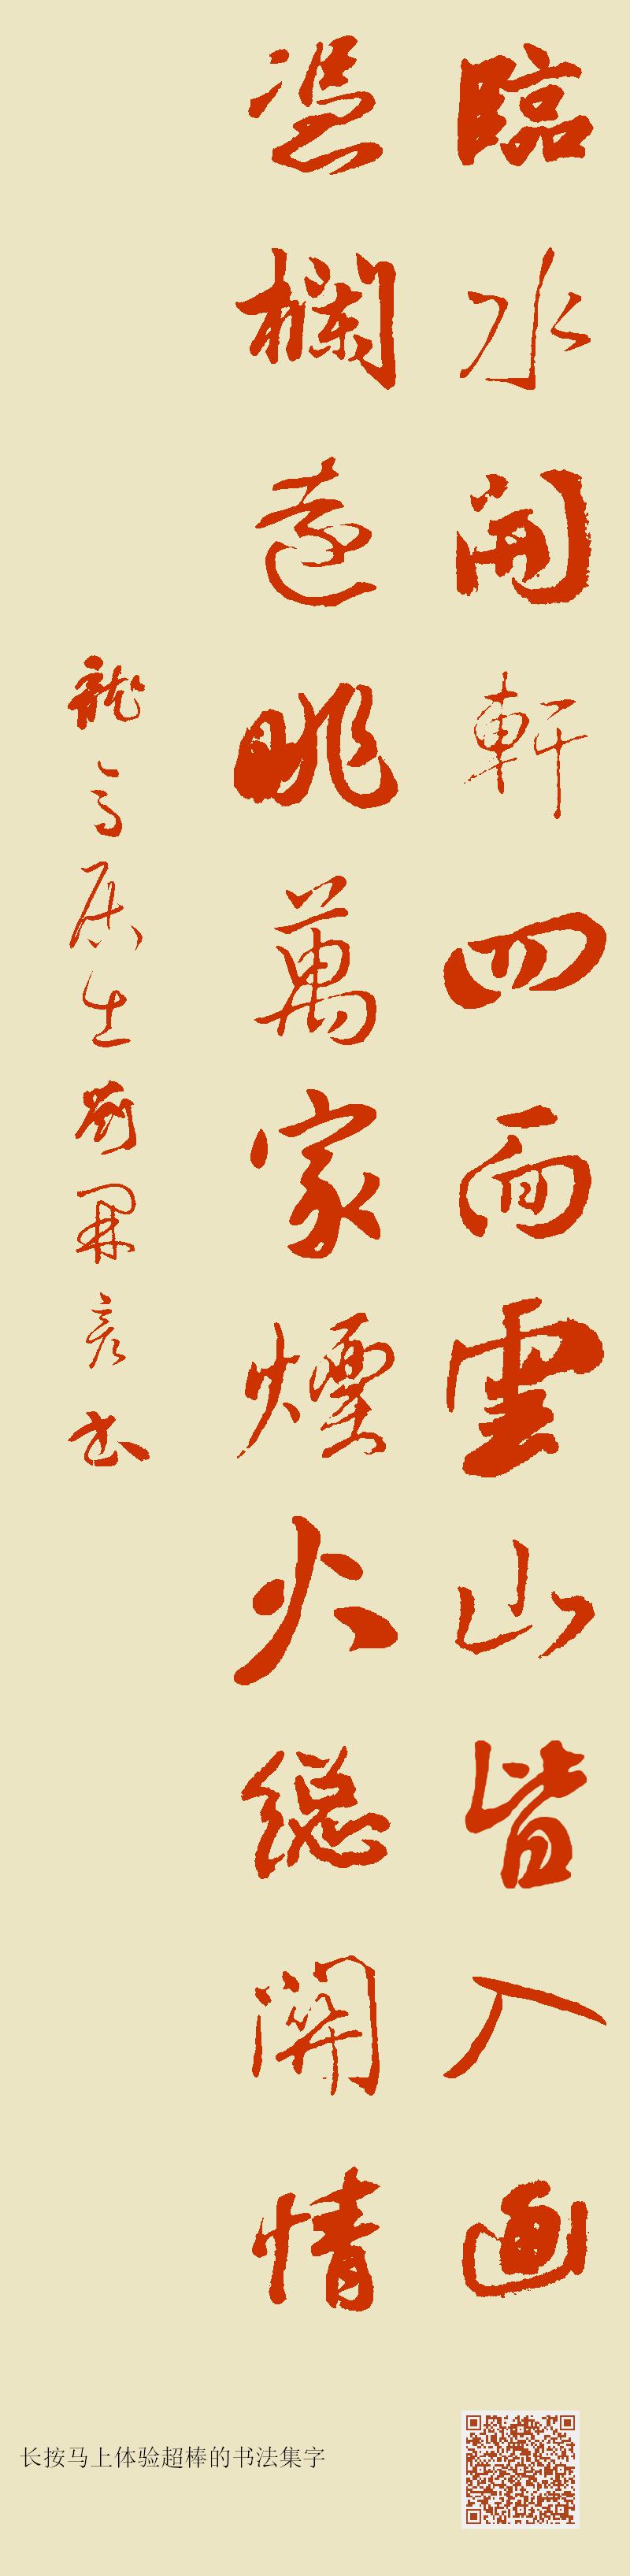 臨水開軒四面雲山皆入画
憑欄遠眺萬家煙火總關情
龍高居士劉開彦书
长按马上体验超棒的书法集字